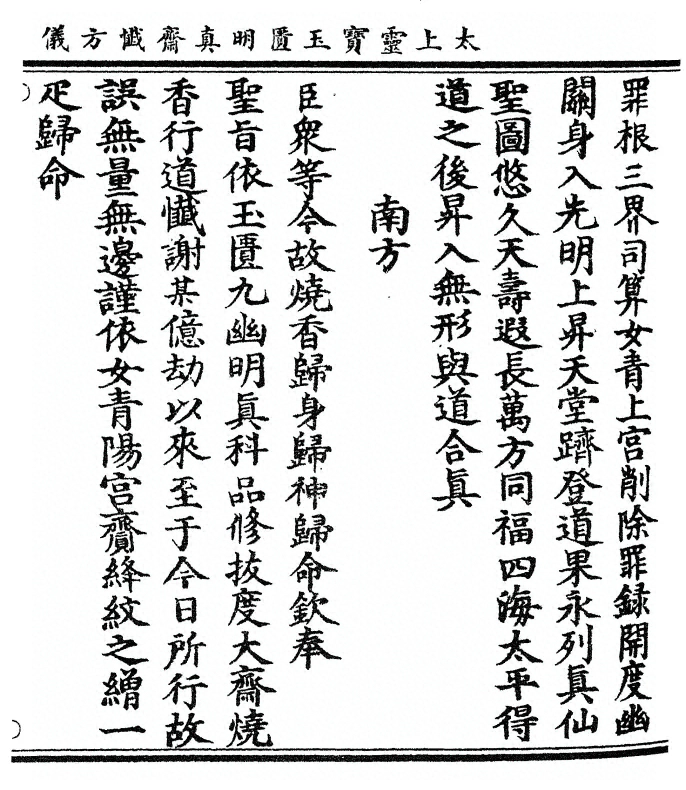 太上靈寶玉匱明真齋懺方儀
罪根三界司算女青上宮削除罪録開度幽
關身入光明上昇天堂躋登道果永列真仙
聖圖悠久天壽遐長萬方同福四海太平得
道之後昇入無形與道合真
南方
臣衆等今故燒香歸身歸神歸命欽奉
聖旨依玉匱九幽明真科品修拔度大齋燒
香行道懺謝某億劫以來至于今日所行故
誤無量無邊謹依女青陽宮齎絳紋之繒一
疋歸命